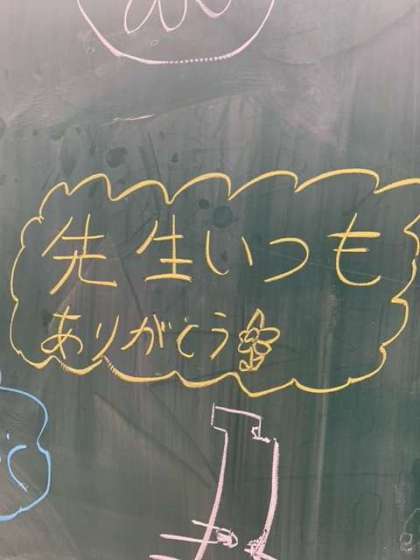 先生いつも
ありがとう